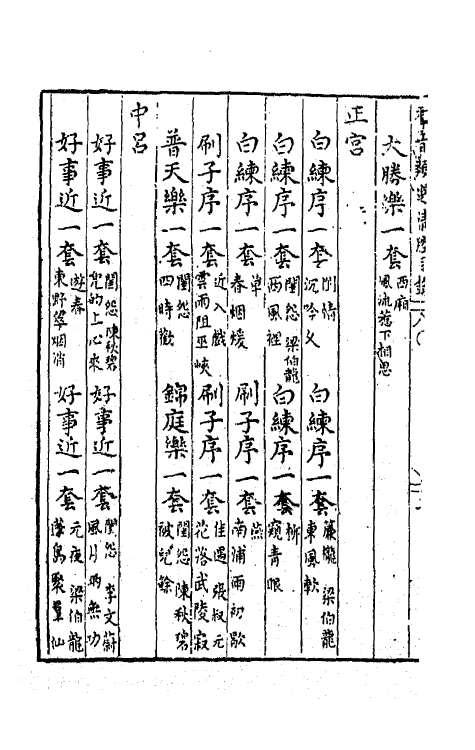 群音類選清腔目錄
大勝樂一套 西廂 風流惹下相思
正宮
白練序一套 閨情 沉吟久 白練序一套 簾櫳 梁伯龍 東風軟
白練序一套 閨怨 梁伯龍 西風裡 白練序一套 柳 窺青眼
白練序一套 草 春烟煖 刷子序一套 燕 南浦雨初歇
刷子序一套 近入戲 雲雨阻巫峽 刷子序一套 佳遇 張叔元 花落武陵寂
普天樂一套 閨怨 四時歡 錦庭樂一套 閨怨 陳秋碧 被兒餘
中呂
好事近一套 閨怨 陳秋碧 兜的上心來 好事近一套 閨怨 李文蔚 風月兩無功
好事近一套 遊春 東野翠烟消 好事近一套 元夜 梁伯龍 蓬島聚羣仙